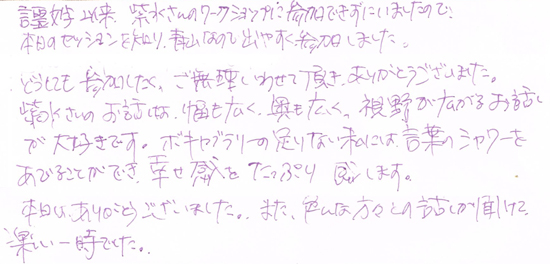 以来、紫水さんのワークショップに参加できずにいましたので、
本日のセッションを知り、青山なので出やすく参加しました。
どうしても参加したく、ご無理いわせて頂き、ありがとうございました。
紫水さんのお話は、幅も広く、奥も広く、視野が広がるお話し
が大好きです。ボキャブラリーの足りない私には、言葉のシャワーを
あびることができ、幸せ感をたっぷり感じます。
本日は、ありがとうございました。また、色んな方々との話しが聞けて
楽しい一時でした。